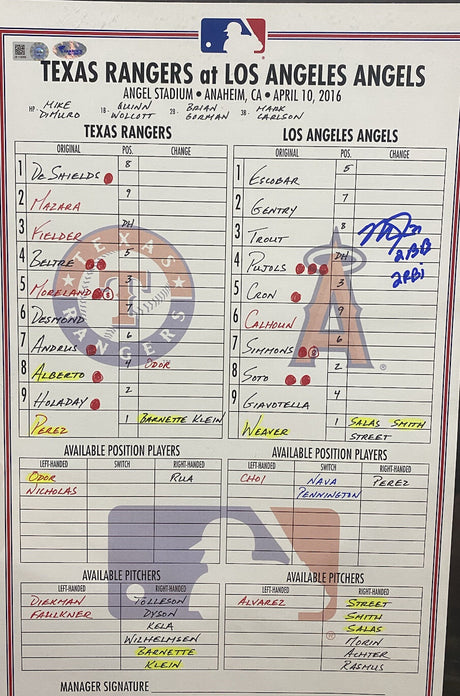 TEXAS RANGERS at LOS ANGELES ANGELS
ANGEL STADIUM • ANAHEIM, CA • APRIL 10, 2016
HP MIKE DIMURO 1B QUINN WOLCOTT 2B BRIAN GORMAN 3B MARK CARLSON
TEXAS RANGERS
ORIGINAL POS. CHANGE
1 DESHIELDS 8
2 MAZARA 9
3 FIELDER DH
4 BELTRE 5
5 MORELAND 3
6 DESMOND 7
7 ANDRUS 6
8 ALBERTO 4 ODOR
9 HOLADAY 2
PEREZ 1 BARNETTE KLEIN
LOS ANGELES ANGELS
ORIGINAL POS. CHANGE
1 ESCOBAR 5
2 GENTRY 7
3 TROUT 8
4 PUJOLS DH
5 CRON 3
6 CALHOUN 9
7 SIMMONS 6
8 SOTO 2
9 GIAVOTELLA 4
WEAVER 1 SALAS SMITH
STREET
27
2 BB
2 RBI
TEXAS RANGERS
T
A
AVAILABLE POSITION PLAYERS
LEFT-HANDED SWITCH RIGHT-HANDED
ODOR RUA
NICHOLAS
AVAILABLE POSITION PLAYERS
LEFT-HANDED SWITCH RIGHT-HANDED
CHOI NAVA PEREZ
PENNINGTON
AVAILABLE PITCHERS
LEFT-HANDED RIGHT-HANDED
DIEKMAN TOLLESON
FAULKNER DYSON
KELA
WILHELMSEN
BARNETTE
KLEIN
AVAILABLE PITCHERS
LEFT-HANDED RIGHT-HANDED
ALVAREZ STREET
SMITH
SALAS
MORIN
ACHTER
RASMUS
MANAGER SIGNATURE